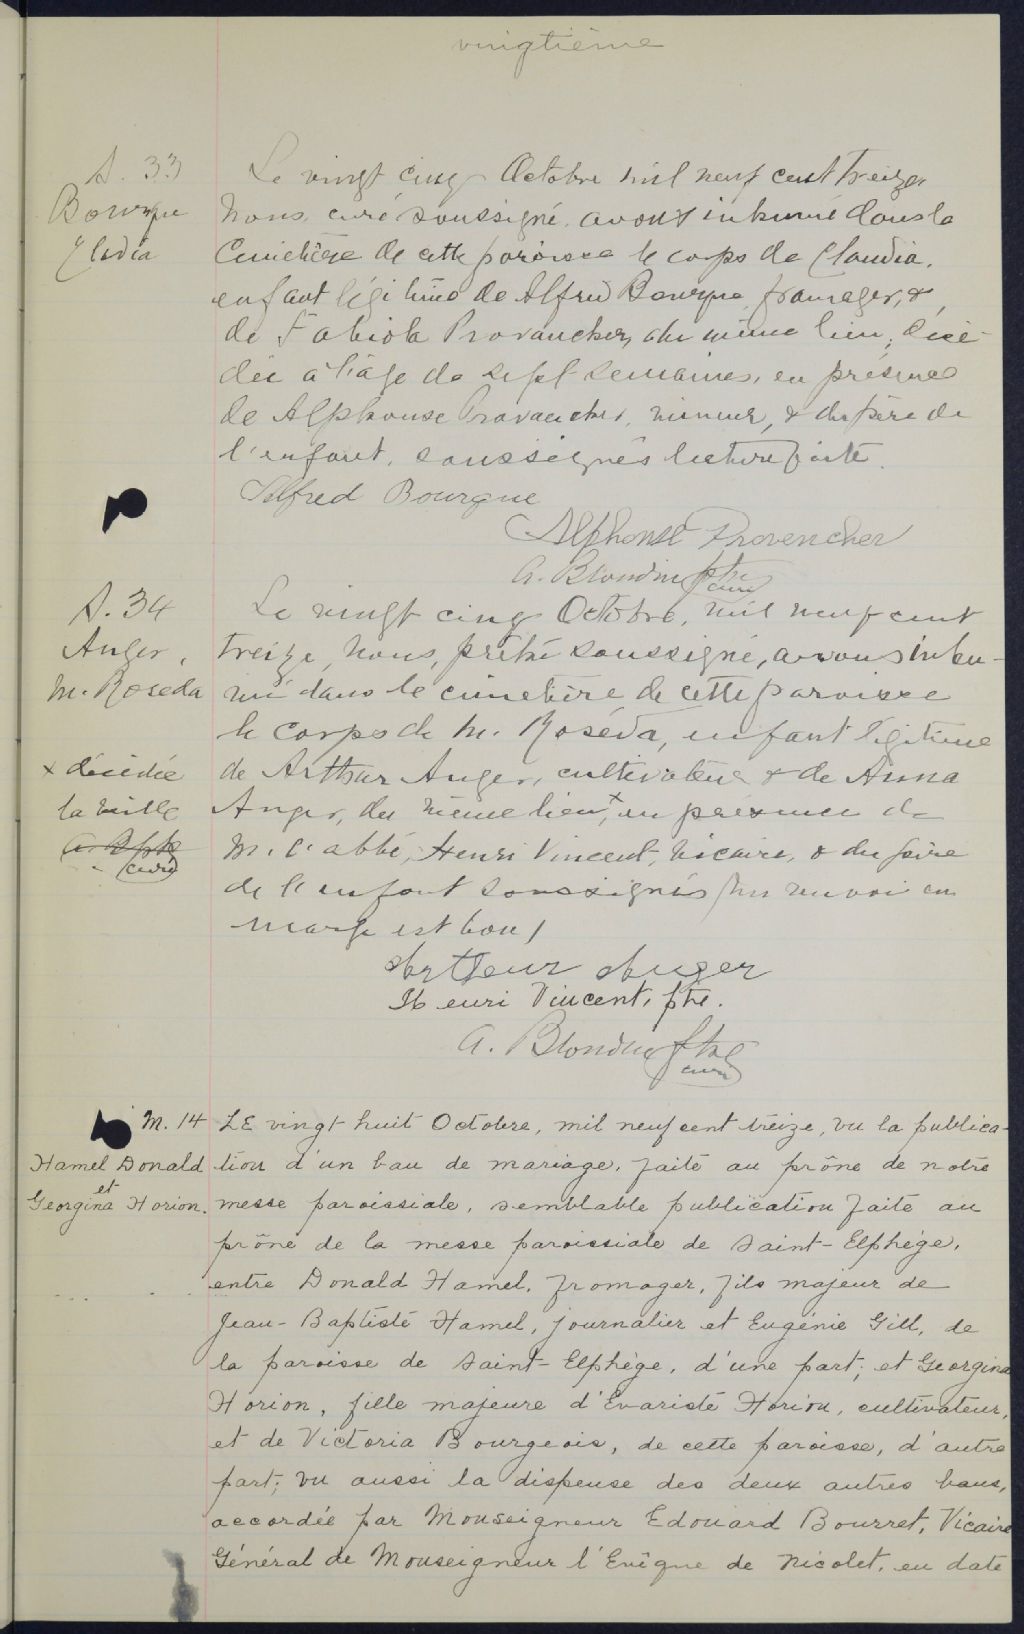 vingtième
S. 33
Bourque
Clodia
Le vingt cinq Octobre mil neuf cent treize
Nous, curé soussigné, avons inhumé dans le
Cimetière de cette paroisse le corps de Claudia,
enfant légitime de Alfred Bourque, fromager, &
de Fabiola Provancher, du même lieu, décé-
dée à l'âge de sept semaines, en présence
de Alphonse Provancher, mineur, & du père de
l'enfant, soussignés lecture faite.
Alfred Bourque
Alphonse Provencher
A. Blondin ptre
curé
S. 34
Anger,
M. Roseda
x décédée
la veille
curé
Le vingt cinq Octobre, mil neuf cent
treize, Nous, prêtre soussigné, avons inhu-
mé dans le cimetière de cette paroisse
le corps de M. Roséda, enfant légitime
de Arthur Anger, cultivateur & de Anna
Anger, du même lieu x, en présence de
M. l'abbé, Henri Vincent, vicaire, & du père
de l'enfant soussignés / un renvoi en
marge est bon /
Arthur Auger
Henri Vincent, ptre.
A. Blondin ptre
curé
M. 14
Hamel Donald
et
Georgina Horion.
LE vingt huit Octobre, mil neuf cent treize, vu la publica-
tion d'un ban de mariage, faite au prône de notre
messe paroissiale, semblable publication faite au
prône de la messe paroissiale de Saint-Elphège,
entre Donald Hamel, fromager, fils majeur de
Jean-Baptiste Hamel, journalier et Eugénie Gill, de
la paroisse de Saint-Elphège, d'une part; et Georgina
Horion, fille majeure d'Evariste Horion, cultivateur,
et de Victoria Bourgeois, de cette paroisse, d'autre
part; vu aussi la dispense des deux autres bans,
accordée par Monseigneur Edouard Bourret, Vicaire
Général de Monseigneur l'Evêque de Nicolet, en date